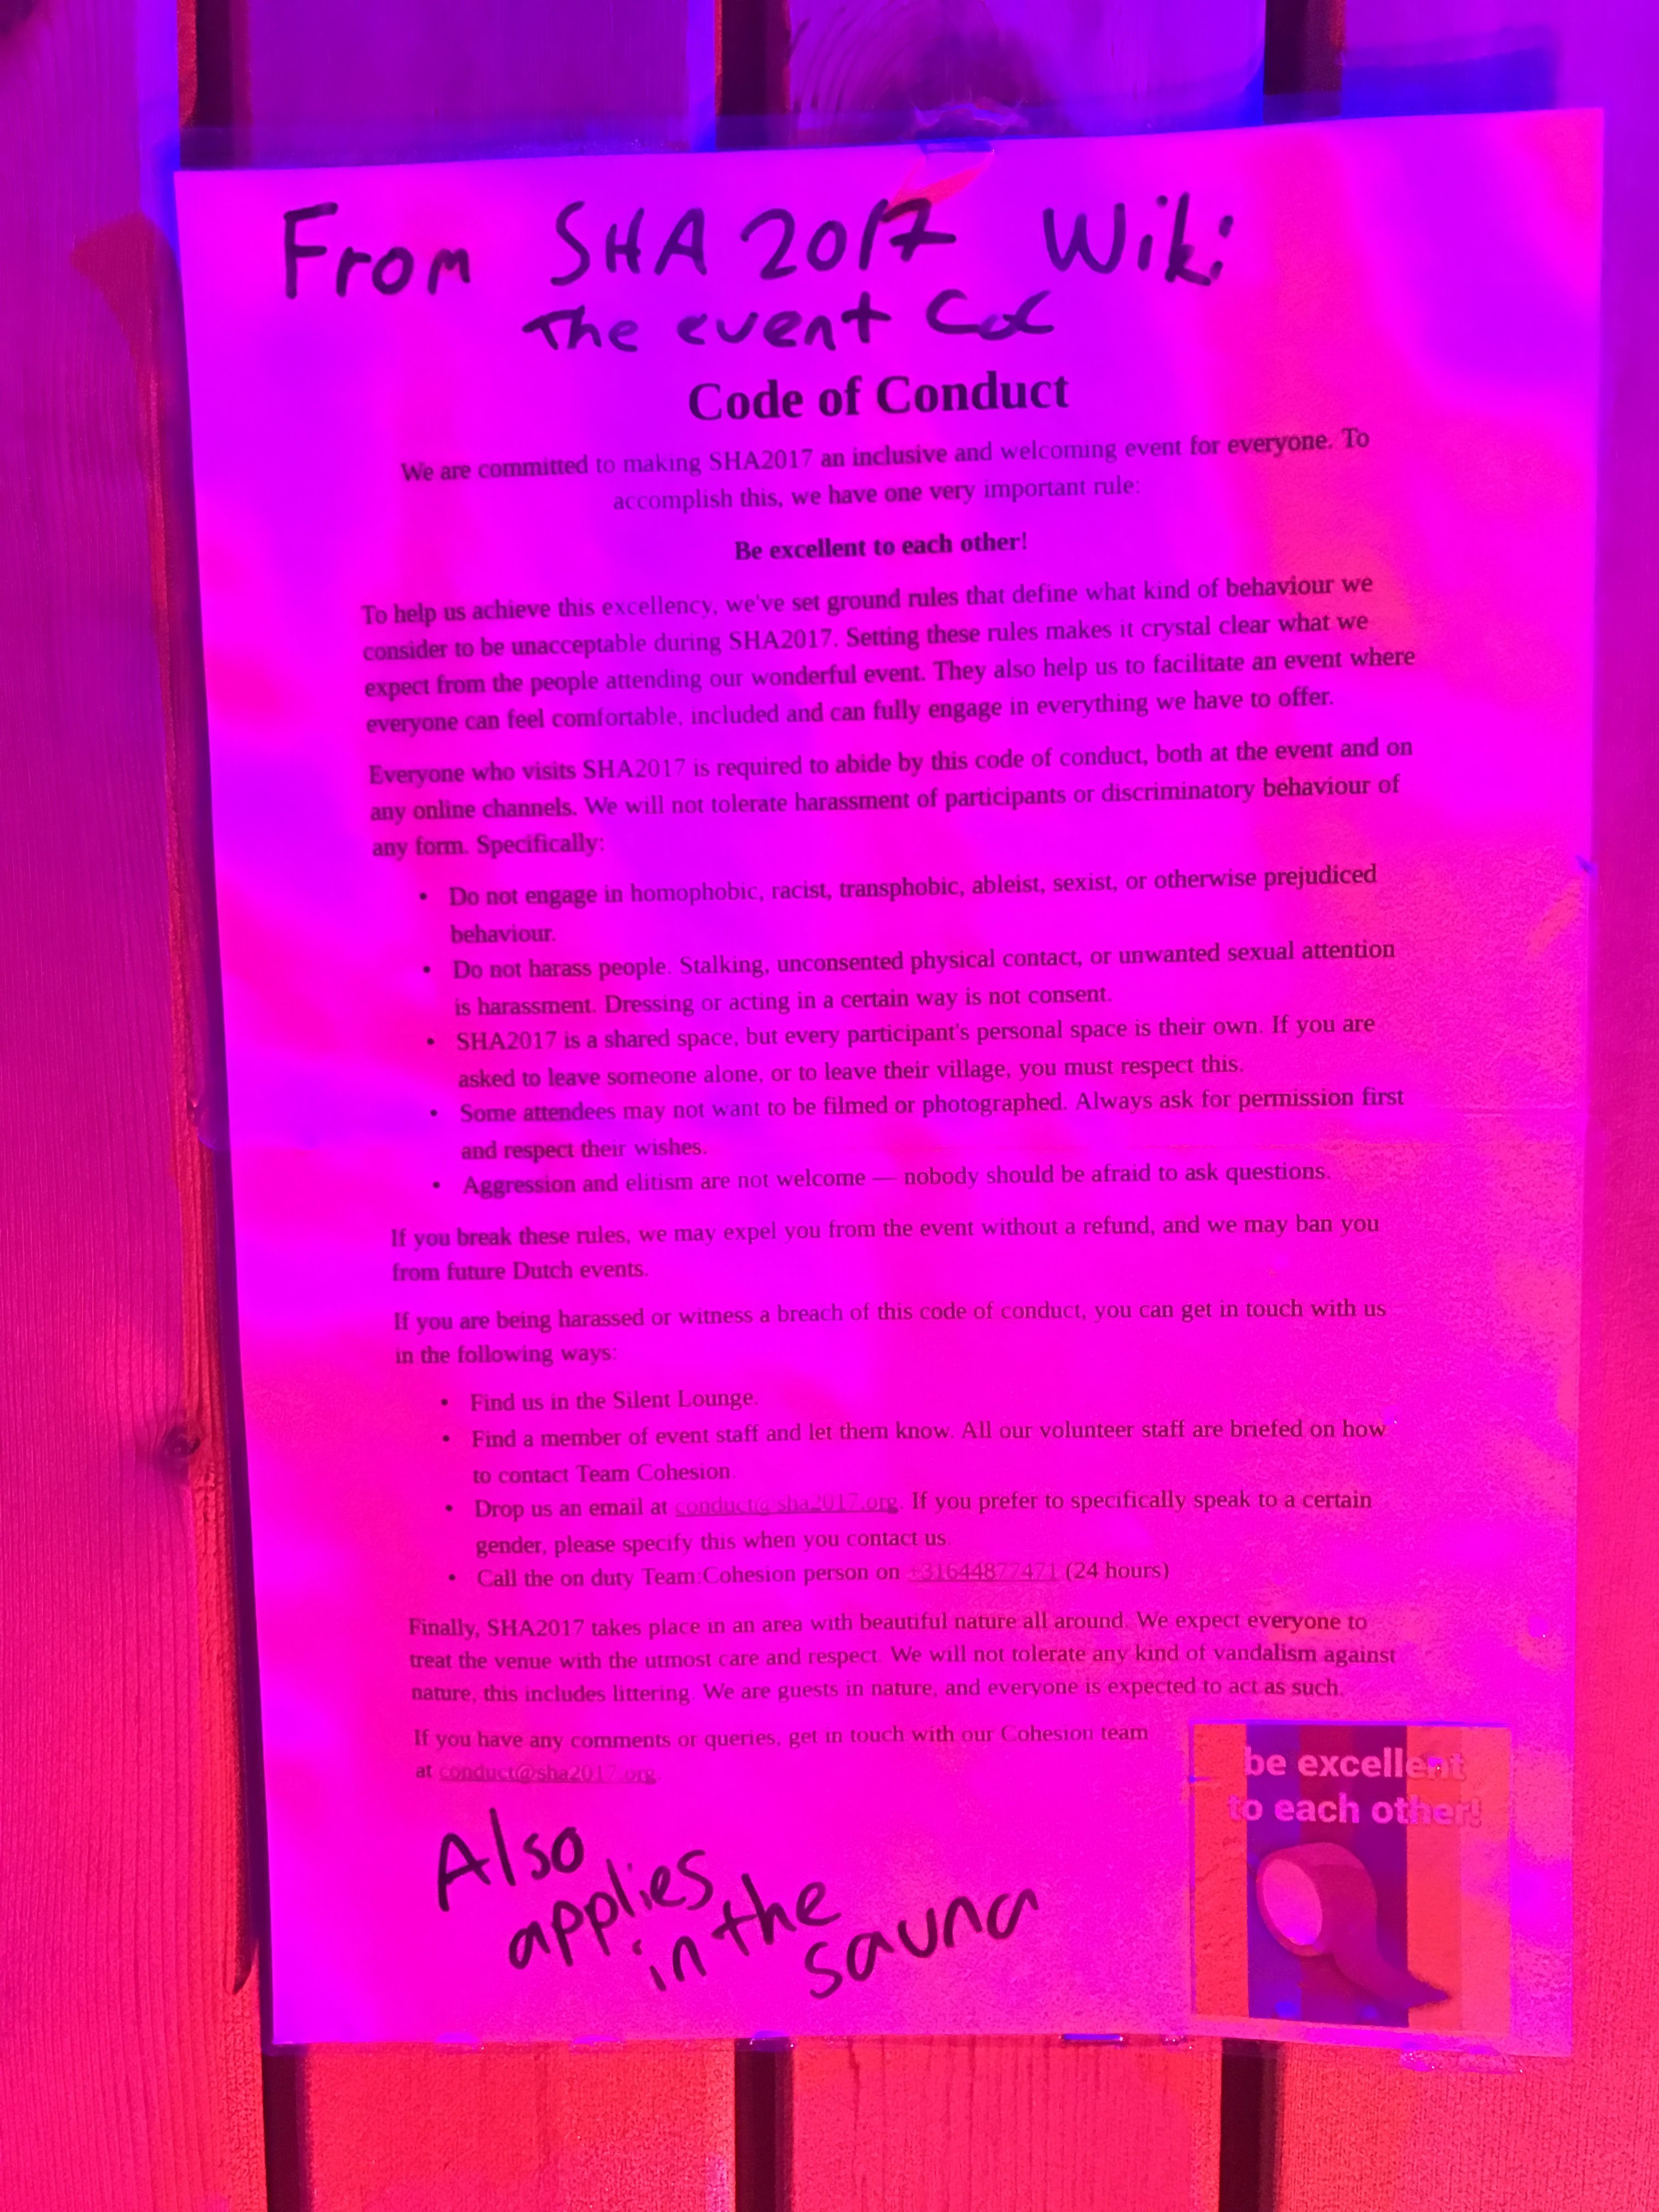 From SHA 2017 Wiki
The event CoC
Code of Conduct
We are committed to making SHA2017 an inclusive and welcoming event for everyone. To
accomplish this, we have one very important rule:
Be excellent to each other!
To help us achieve this excellency, we've set ground rules that define what kind of behaviour we
consider to be unacceptable during SHA2017. Setting these rules makes it crystal clear what we
expect from the people attending our wonderful event. They also help us to facilitate an event where
everyone can feel comfortable, included and can fully engage in everything we have to offer.
Everyone who visits SHA2017 is required to abide by this code of conduct, both at the event and on
any online channels. We will not tolerate harassment of participants or discriminatory behaviour of
any form. Specifically:
• Do not engage in homophobic, racist, transphobic, ableist, sexist, or otherwise prejudiced
behaviour.
• Do not harass people. Stalking, unconsented physical contact, or unwanted sexual attention
is harassment. Dressing or acting in a certain way is not consent.
• SHA2017 is a shared space, but every participant's personal space is their own. If you are
asked to leave someone alone, or to leave their village, you must respect this.
• Some attendees may not want to be filmed or photographed. Always ask for permission first
and respect their wishes.
• Aggression and elitism are not welcome — nobody should be afraid to ask questions.
If you break these rules, we may expel you from the event without a refund, and we may ban you
from future Dutch events.
If you are being harassed or witness a breach of this code of conduct, you can get in touch with us
in the following ways:
• Find us in the Silent Lounge.
• Find a member of event staff and let them know. All our volunteer staff are briefed on how
to contact Team Cohesion.
• Drop us an email at conduct@sha2017.org. If you prefer to specifically speak to a certain
gender, please specify this when you contact us.
• Call the on duty Team:Cohesion person on +31644877471 (24 hours)
Finally, SHA2017 takes place in an area with beautiful nature all around. We expect everyone to
treat the venue with the utmost care and respect. We will not tolerate any kind of vandalism against
nature, this includes littering. We are guests in nature, and everyone is expected to act as such.
If you have any comments or queries, get in touch with our Cohesion team
at conduct@sha2017.org.
be excellent
to each other!
Also
applies
in the
sauna